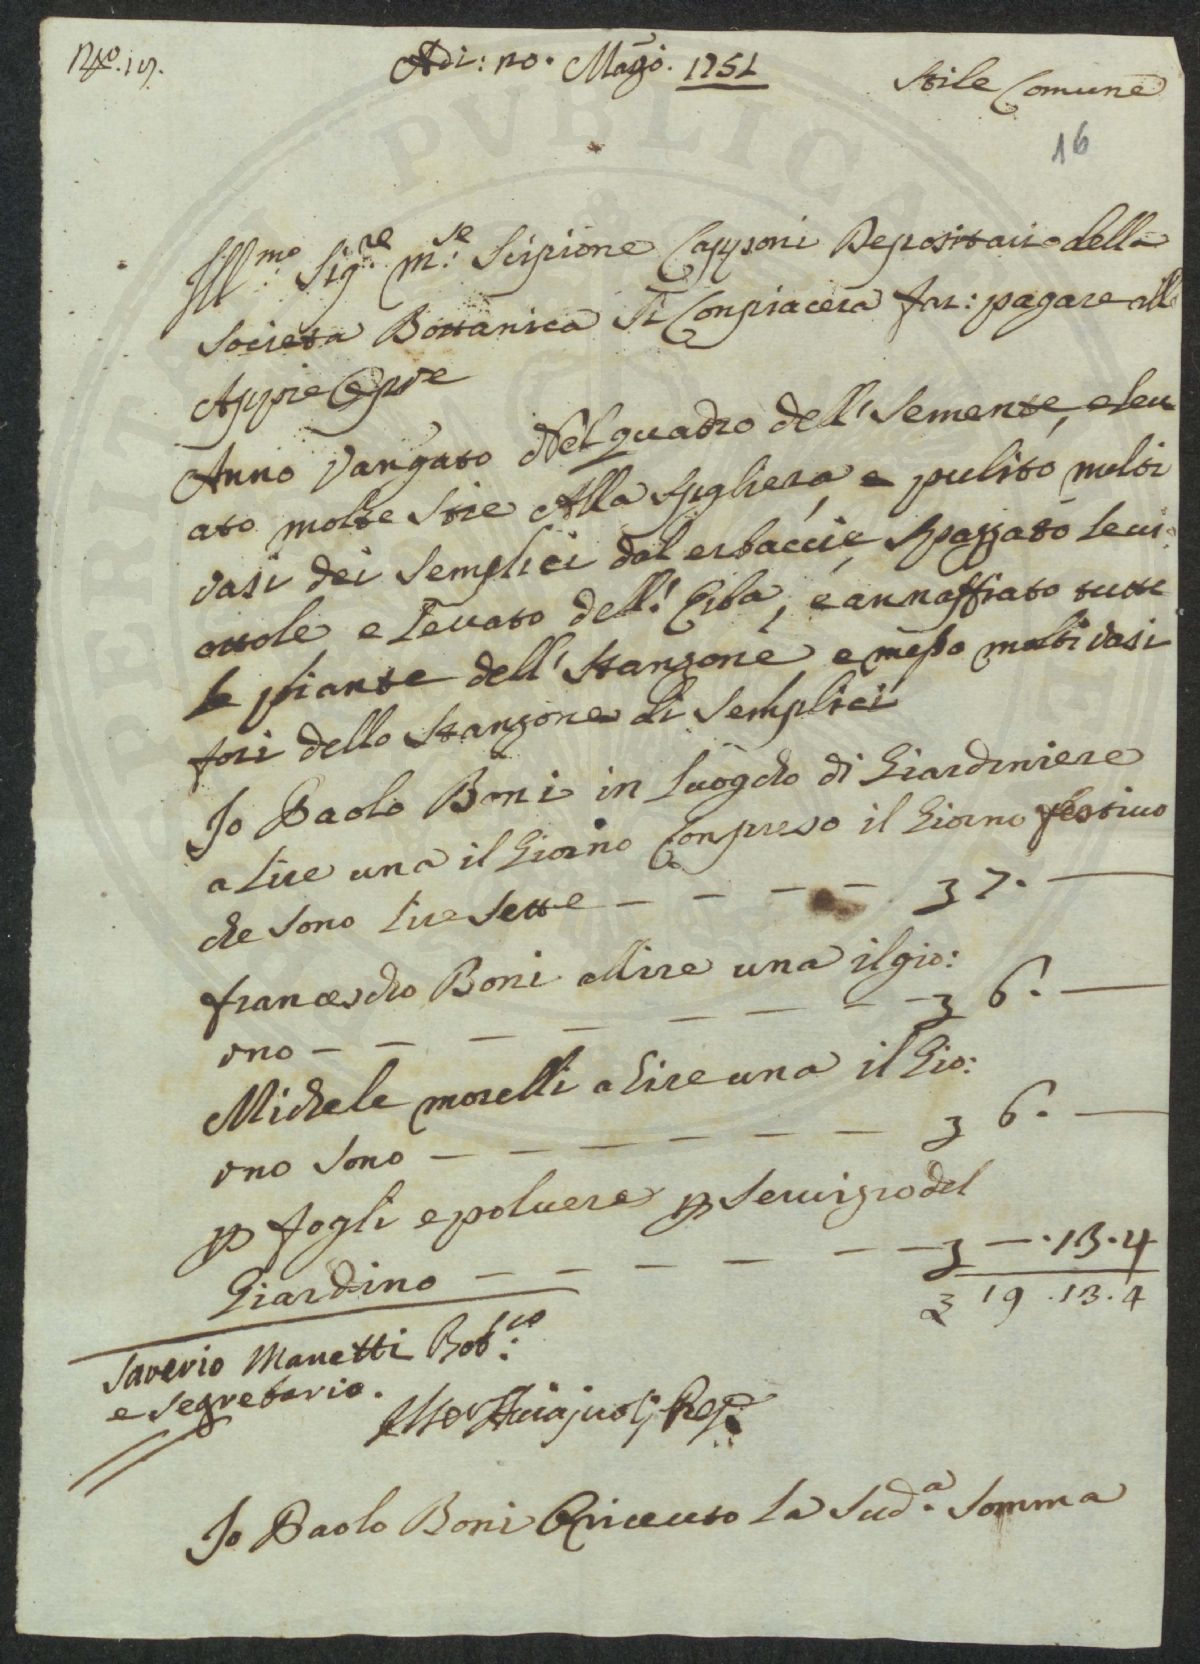 Adi: 20. Magio. 1751
Stile Comune
16
Ill.mo Sig.re M.se Scipione Capponi Depositario della
Societa Bottanica Si Conpiacera far: pagare all
Appie
Anno Vangato Nel quadro dell' Semente, e leu
ato molte Stie Alla Spigliera, e pulito molti
vasi dei Semplici dal erbaccie, Spazzato le ui
ottole e Leuato dell' Erba, e annaffiato tutte
le piante dell' Stanzone e messo molti vasi
fori dello Stanzone di Semplici
Io Paolo Boni in Luogho di Giardiniere
a Lire una il Giorno Conpreso il Giorno festiuo
che Sono Lire Sette 7.
francescho Boni a Lire una il gio:
rno 6.
Michele morelli a Lire una il Gio:
rno Sono 6.
p fogli e poluere p Seruizio del
Giardino .13.4
19 .13.4
Saverio Manetti Bot.co
e Segretario.
Io Paolo Boni O riceuto La Sud.a Somma